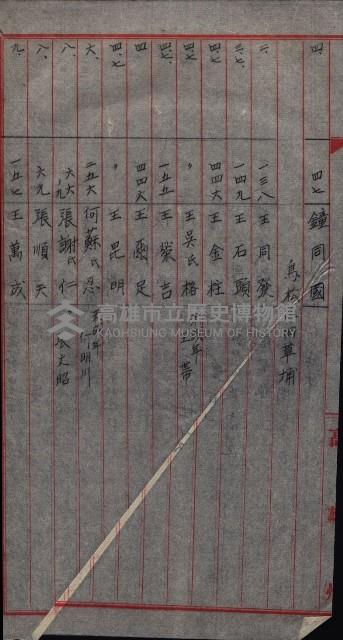 四、 四七 鐘同國
草埔
二、 一三八 王同發
三、七、 一四九 王石頭
四、七、 四四六 王金柱
四、七、 〃 王吳氏格
四、七、 一五五 王榮吉
四、 四四六 王 足
四、七、 〃 王昆明
六、 二五六 何蘇氏忍 明川
八、 六六九 張謝氏仁 張文昭
八、 六九 張順天
九、 一五七 王萬成
高雄市立歷史博物館
KAOHSIUNG MUSEUM OF HISTORY
高雄州